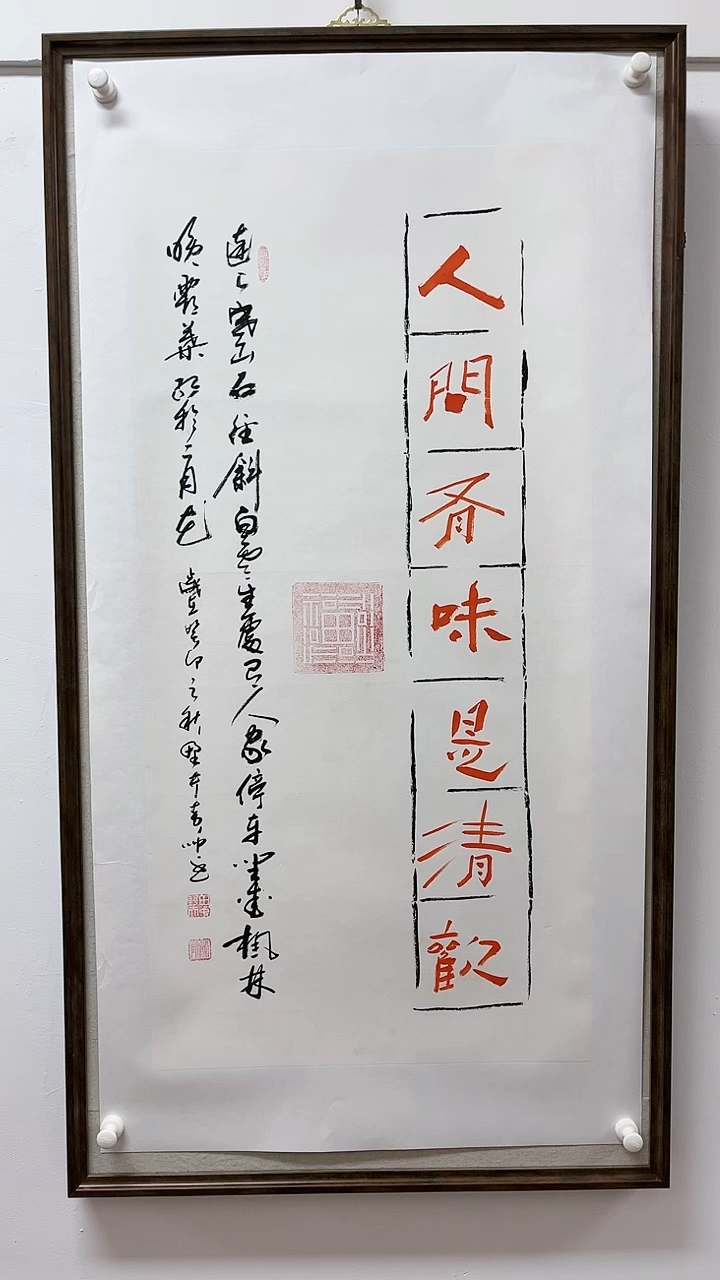 人間有味是清歡
遠上寒山石徑斜白雲生處有人家停车坐愛楓林
晚霜葉紅於二月花
歲在癸卯之秋